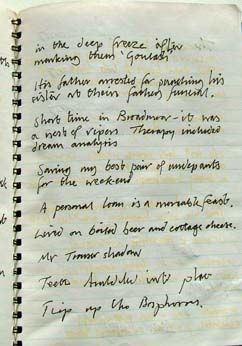 in the deep freeze after
marking them 'Goulash'
His father arrested for punching his
sister at their fathers funeral.
Short time in Broadmoor - it was
a nest of vipers. Therapy included
dream analysis
Saving my best pair of underpants
for the weekend
A personal loan is a moveable feast.
Lived on boiled beer and cottage cheese.
Mr Trouser shadow
into place
Trip up the Bosphorus.